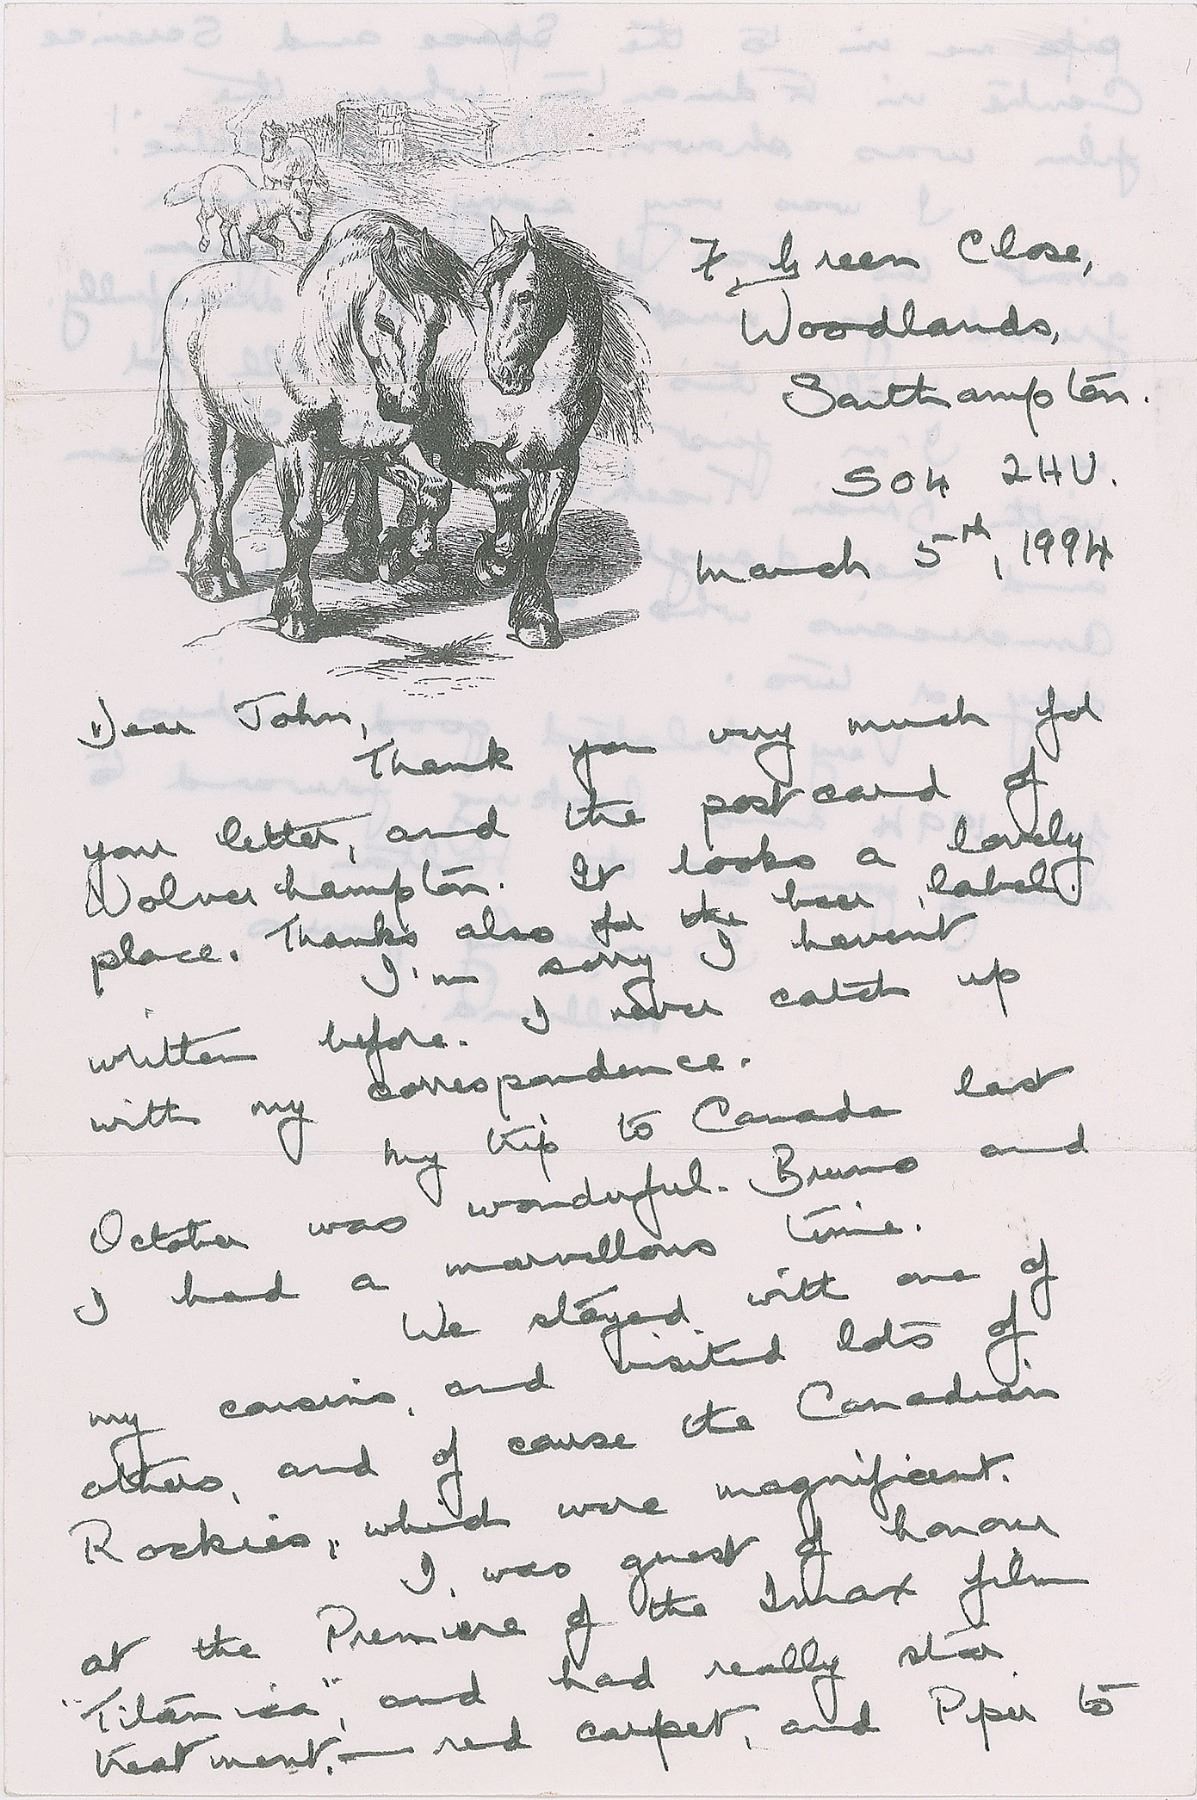 7, Green Close,
Woodlands,
Southampton.
SO4 2HU.
March 5th, 1994
Dear John,
Thank you very much for
your letter, and the postcard of
Wolverhampton. It looks a lovely
place. Thanks also for the beer label.
I'm sorry I havent
written before. I never catch up
with my correspondence.
My trip to Canada last
October was wonderful. Bruno and
I had a marvellous time.
We stayed with one of
my cousins, and visited lots of
others, and of cause the Canadian
Rockies, which were magnificent.
I was guest of honour
at the Premiere of the Imax film
"Titanica", and had really star
treatment, — red carpet, and Piper to